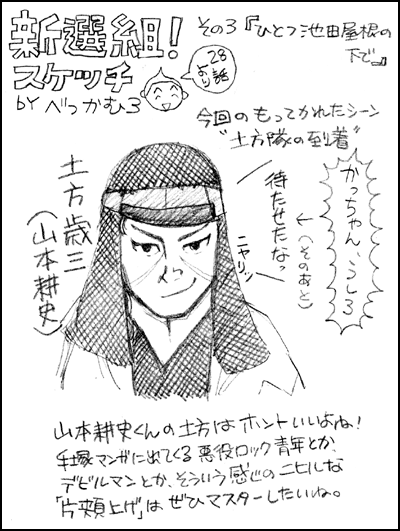 新選組!
スケッチ
BY べっかむ3
28話より
その3『ひとつ池田屋根の
下で。』
今回のもってかれたシーン
"土方隊の到着"
かっちゃん、うしろ
←(そのあと)
待たせたなっ
ニヤリッ
土方歳三
(山本耕史)
山本耕史くんの土方はホントいいよね!
手塚マンガに出てくる悪役ロック青年とか、
デビルマンとか、そういう感じのニヒルな
「片頬上げ」はぜひマスターしたいね。